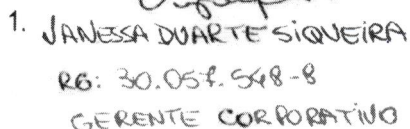 1. VANESSA DUARTE SIQUEIRA
RG: 30.057.548-8
GERENTE CORPORATIVO